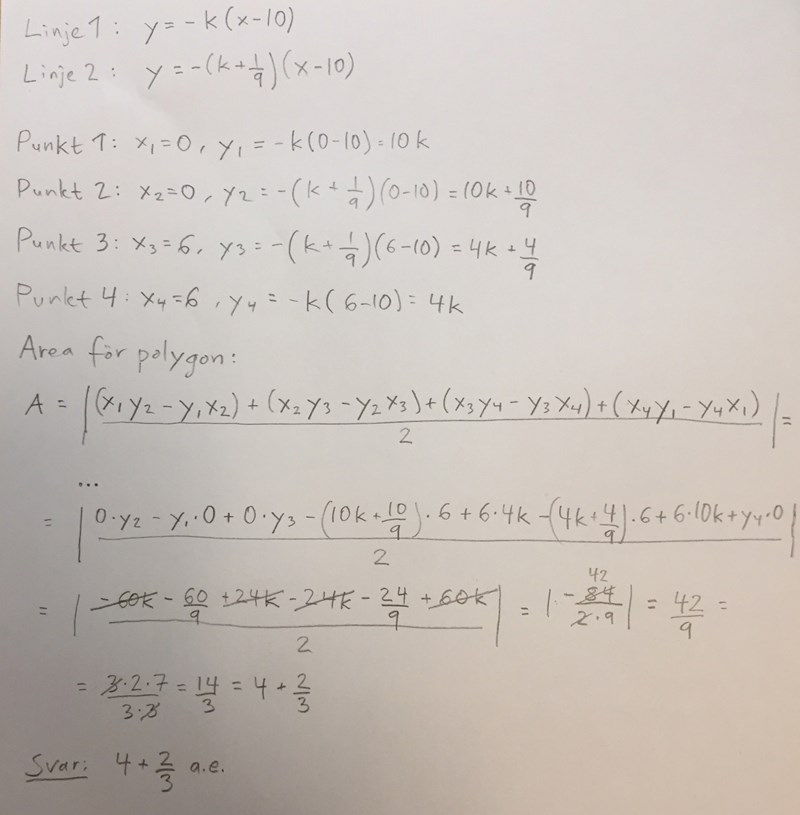 Linje 1: y = -k(x-10)
Linje 2: y = -(k+1/9)(x-10)
Punkt 1: x₁=0, y₁ = -k(0-10) = 10k
Punkt 2: x₂=0, y₂ = -(k+1/9)(0-10) = 10k + 10/9
Punkt 3: x₃=6, y₃ = -(k+1/9)(6-10) = 4k + 4/9
Punkt 4: x₄=6, y₄ = -k(6-10) = 4k
Area för polygon:
A = |((x₁y₂ - y₁x₂) + (x₂y₃ - y₂x₃) + (x₃y₄ - y₃x₄) + (x₄y₁ - y₄x₁))/2| =
...
= |(0·y₂ - y₁·0 + 0·y₃ - (10k + 10/9)·6 + 6·4k - (4k + 4/9)·6 + 6·10k + y₄·0)/2|
= |(-60k - 60/9 + 24k - 24k - 24/9 + 60k)/2| = |-84/(2·9)| 42 = 42/9 =
= 3·2·7/(3·3) = 14/3 = 4 + 2/3
Svar: 4 + 2/3 a.e.